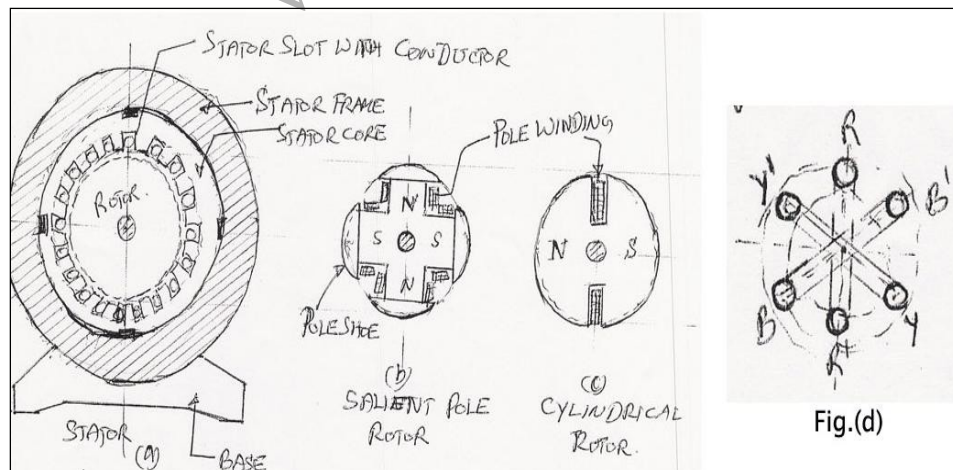 STATOR SLOT WITH CONDUCTOR
STATOR FRAME
STATOR CORE
ROTOR.
STATOR
(a)
BASE
POLE WINDING
N
S S
N
POLE SHOE
(b)
SALIENT POLE
ROTOR
N S
(c)
CYLINDRICAL
ROTOR.
R
Y'
B'
B
Y
R'
Fig.(d)